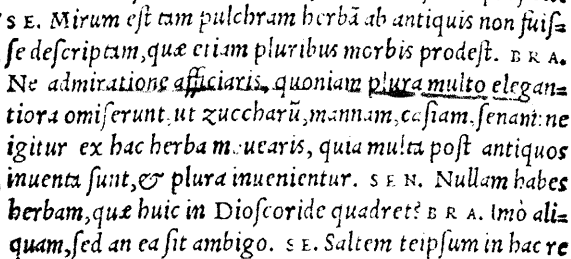 S E. Mirum eſt tam pulchram herbã ab antiquis non fuiſ=
ſe deſcriptam, quæ etiam pluribus morbis prodeſt. B R A.
Ne admiratione afficiaris, quoniam plura multo elegan=
tiora omiſerunt ut zuccharũ, mannam, caſiam, ſenam: ne
igitur ex hac herba quia multa poſt antiquos
inuenta ſunt, & plura inuenientur. S E N. Nullam habes
herbam, quæ huic in Dioſcoride quadret? B R A. Imò ali=
quam, ſed an ea ſit ambigo. S E. Saltem teipſum in hac re